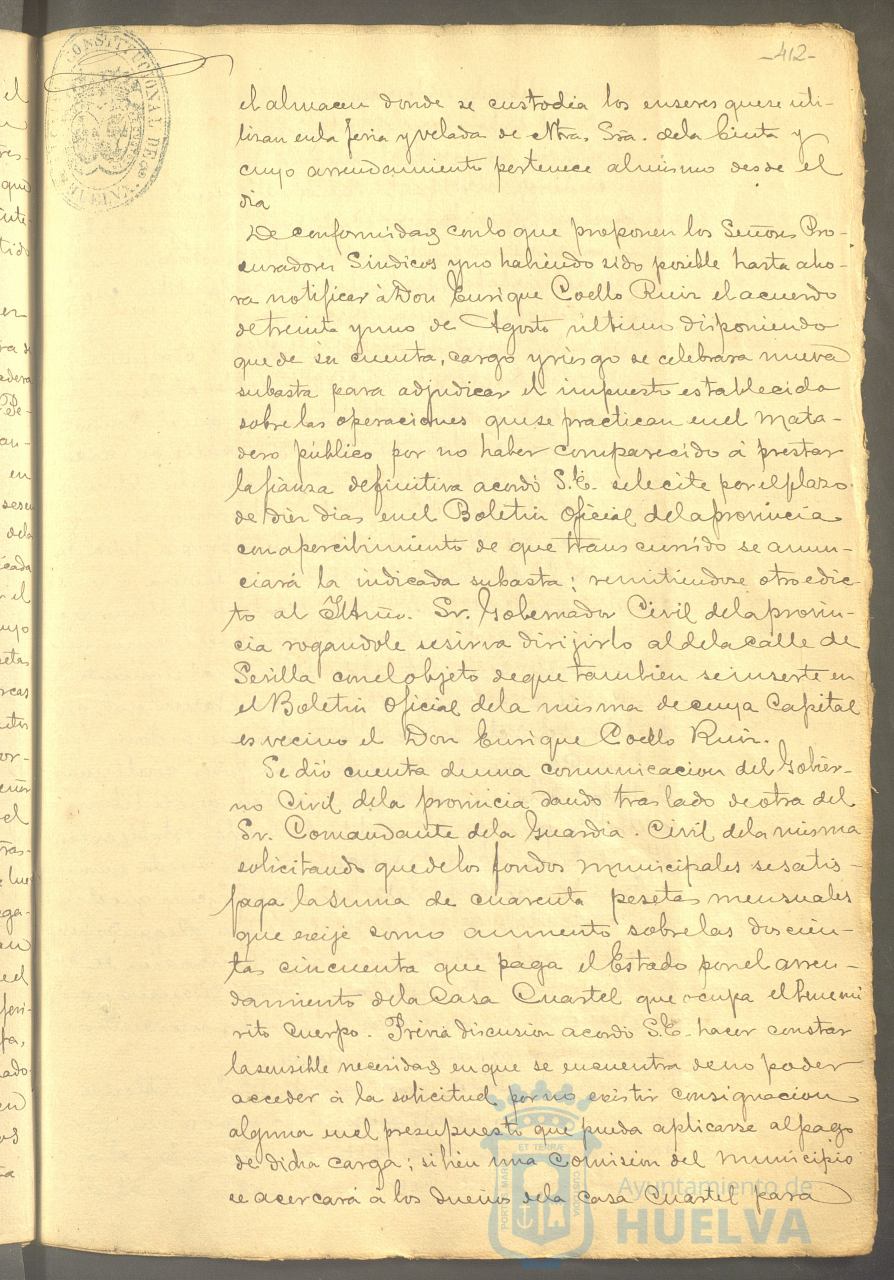 -412-
el almacen donde se custodia los enseres que se uti-
lizan en la feria y velada de Ntra. Sra. de la Cinta y
cuyo arrendamiento pertenece al mismo desde el
dia
De conformidad con lo que proponen los Señores Pro-
curadores Sindicos y no habiendo sido posible hasta aho-
ra notificar á Don Enrique Coello Ruiz el acuerdo
de treinta y uno de Agosto último disponiendo
que de su cuenta, cargo y riesgo se celebrara nueva
subasta para adjudicar el impuesto establecido
sobre las operaciones que se practican en el Mata-
dero público por no haber comparecido á prestar
la fianza definitiva acordó S.E. se le cite por el plazo
de diez dias en el Boletin Oficial de la provincia
con apercibimiento de que transcurrido se anun-
ciará la indicada subasta; remitiendose otro edic-
to al Iltmo. Sr. Gobernador Civil de la provin-
cia rogandole se sirva dirijirlo al de la calle de
Sevilla con el objeto de que tambien se inserte en
el Boletin Oficial de la misma de cuya Capital
es vecino el Don Enrique Coello Ruiz.
Se dió cuenta de una comunicacion del Gobier-
no Civil de la provincia dando traslado de otra del
Sr. Comandante de la Guardia Civil de la misma
solicitando que de los fondos municipales se satis-
faga la suma de cuarenta pesetas mensuales
que exije como aumento sobre las doscien-
tas cincuenta que paga el Estado por el arren-
damiento de la Casa Cuartel que ocupa el benemé
rito Cuerpo. Prévia discusion acordó S.E. hacer constar
la sensible necesidad en que se encuentra de no poder
acceder á la solicitud por no existir consignacion
alguna en el presupuesto que pueda aplicarse al pago
de dicha carga; si bien una Comision del Municipio
se acercará á los dueños de la casa Cuartel para
Ayuntamiento de
HUELVA